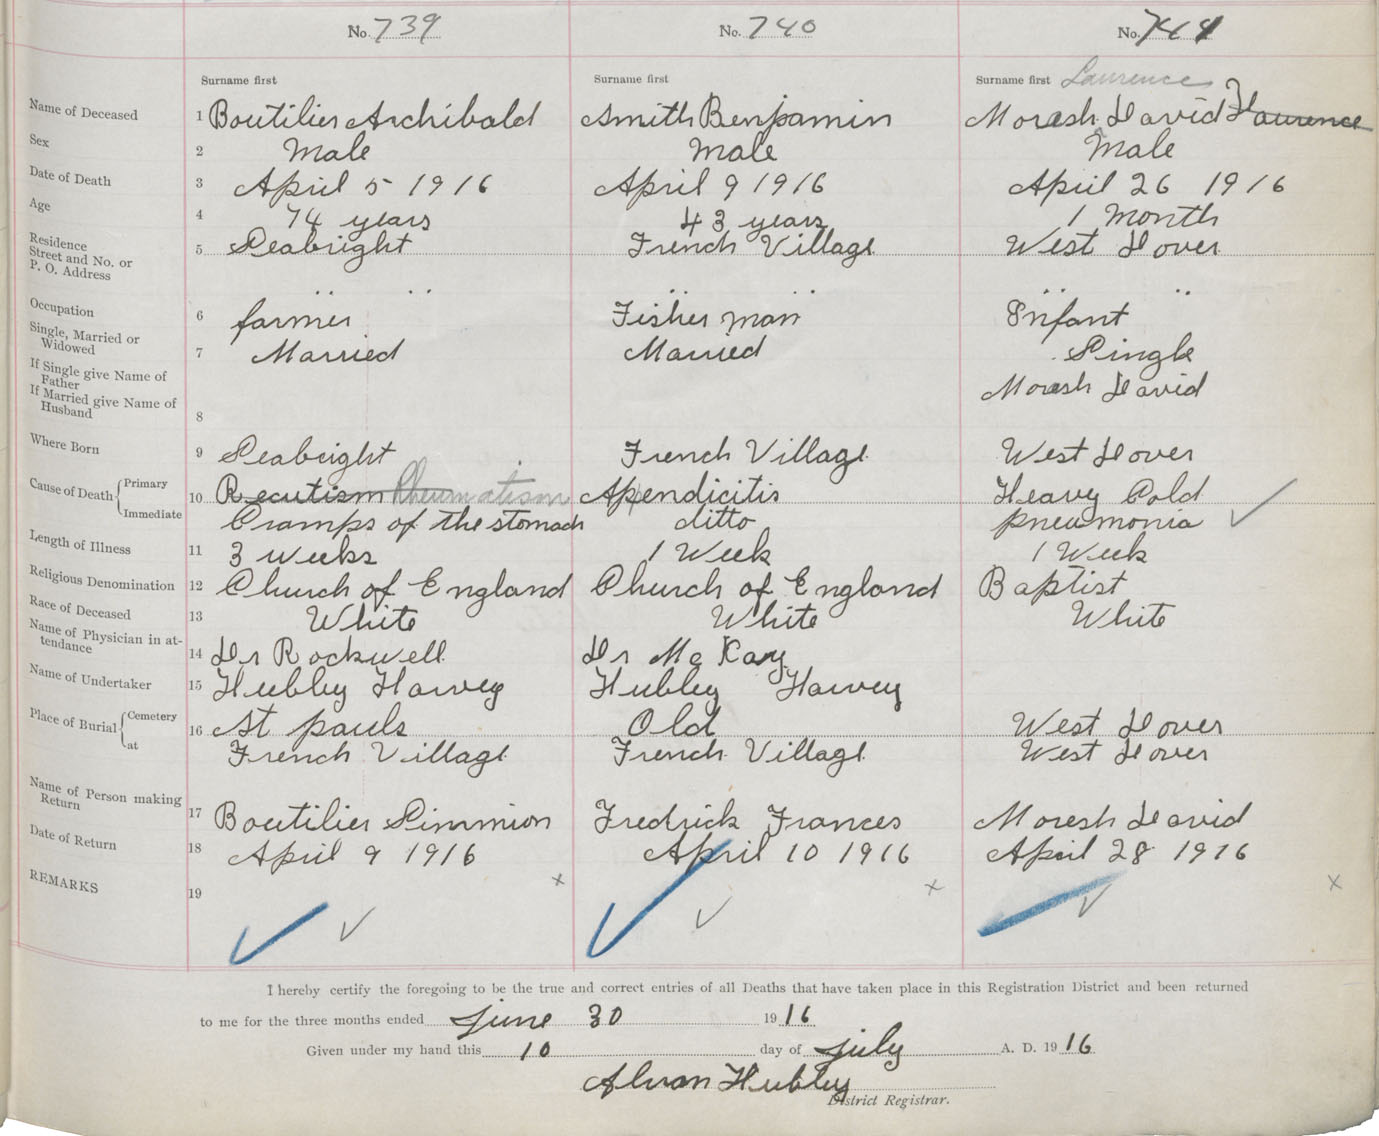 No. 739 No. 740 No. 741
Surname first Surname first Surname first Laurence
Name of Deceased 1 Boutilier Archibald Smith Benjamin Morash David Flaurence
Sex 2 Male Male Male
Date of Death 3 April 5 1916 April 9 1916 April 26 1916
Age 4 74 years 43 years 1 Month
Residence Street and No. or P. O. Address 5 Seabright French Village West Dover
Occupation 6 farmer Fisher man Infant
Single, Married or Widowed 7 Married Married Single
If Single give Name of Father Morash David
If Married give Name of Husband 8
Where Born 9 Seabright French Village West Dover
Cause of Death Primary 10 Recutism Rheumatism Apendicitis Heavy Cold
Immediate Cramps of the stomach ditto pneumonia
Length of Illness 11 3 weeks 1 Week 1 Week
Religious Denomination 12 Church of England Church of England Baptist
Race of Deceased 13 White White White
Name of Physician in attendance 14 Dr Rockwell Dr McKay
Name of Undertaker 15 Hubley Harvey Hubley Harvey
Place of Burial Cemetery 16 St pauls Old West Dover
at French Village French Village West Dover
Name of Person making Return 17 Boutilier Simmion Fredrick Frances Morash David
Date of Return 18 April 9 1916 April 10 1916 April 28 1916
REMARKS 19 x x x
I hereby certify the foregoing to be the true and correct entries of all Deaths that have taken place in this Registration District and been returned
to me for the three months ended June 30 1916
Given under my hand this 10 day of July A. D. 1916
Alvan Hubley
District Registrar.